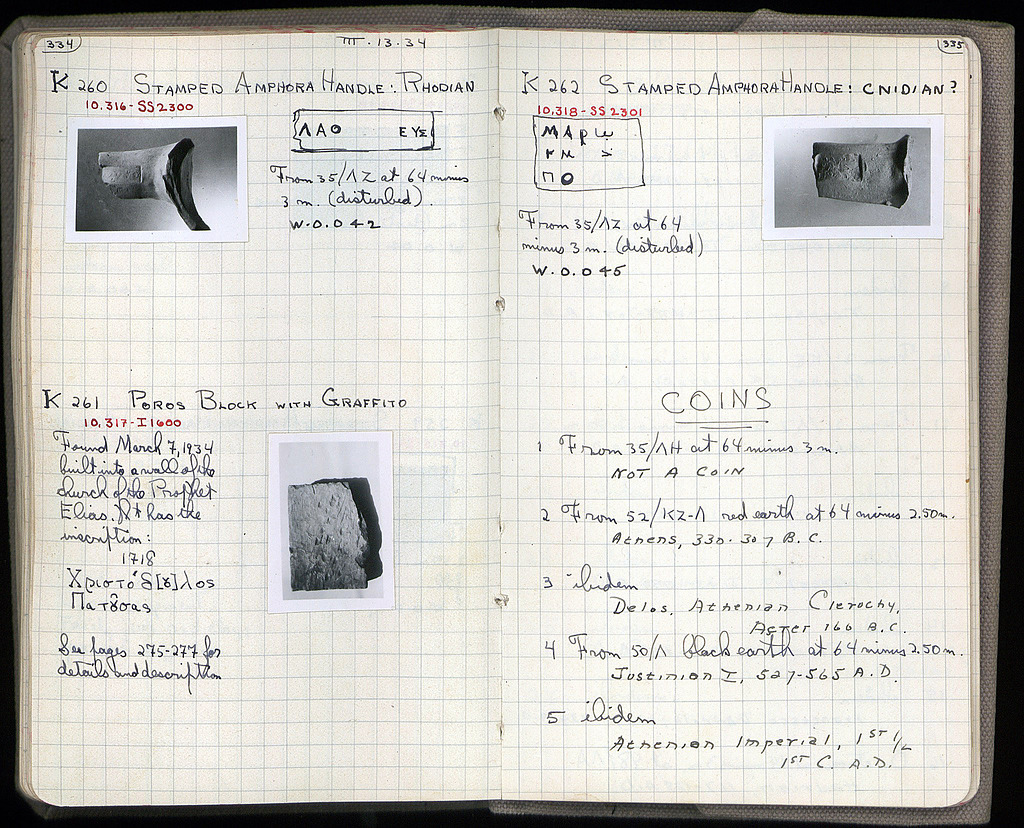 334
III.13.34
K 260 STAMPED AMPHORA HANDLE: RHODIAN
10,316-SS2300
ΛΑΟ ΕΥΣ
From 35/ΛΖ at 64 minus
3 m. (disturbed).
W.O.042
K 261 POROS BLOCK WITH GRAFFITO
10,317-I1600
Found March 7, 1934
built into a wall of the
church of the Prophet
Elias. It has the
inscription:
1718
Χριστόδ[ȣ]λος
Πατȣσας
See pages 275-277 for
details and description
335
K 262 STAMPED AMPHORA HANDLE: CNIDIAN?
10,318-SS2301
ΜΑΡ
ΠΟ
From 35/ΛΖ at 64
minus 3 m. (disturbed)
W.O.045
COINS
1 From 35/ΛΗ at 64 minus 3 m.
NOT A COIN
2 From 52/ΚΖ-Λ red earth at 64 minus 2.50m.
Athens, 330-307 B.C.
3 ibidem
Delos, Athenian Cleruchy,
After 166 B.C.
4 From 50/Λ black earth at 64 minus 2.50m.
Justinian I, 527-565 A.D.
5 ibidem
Athenian Imperial, 1ST 1/2
1ST C. A.D.